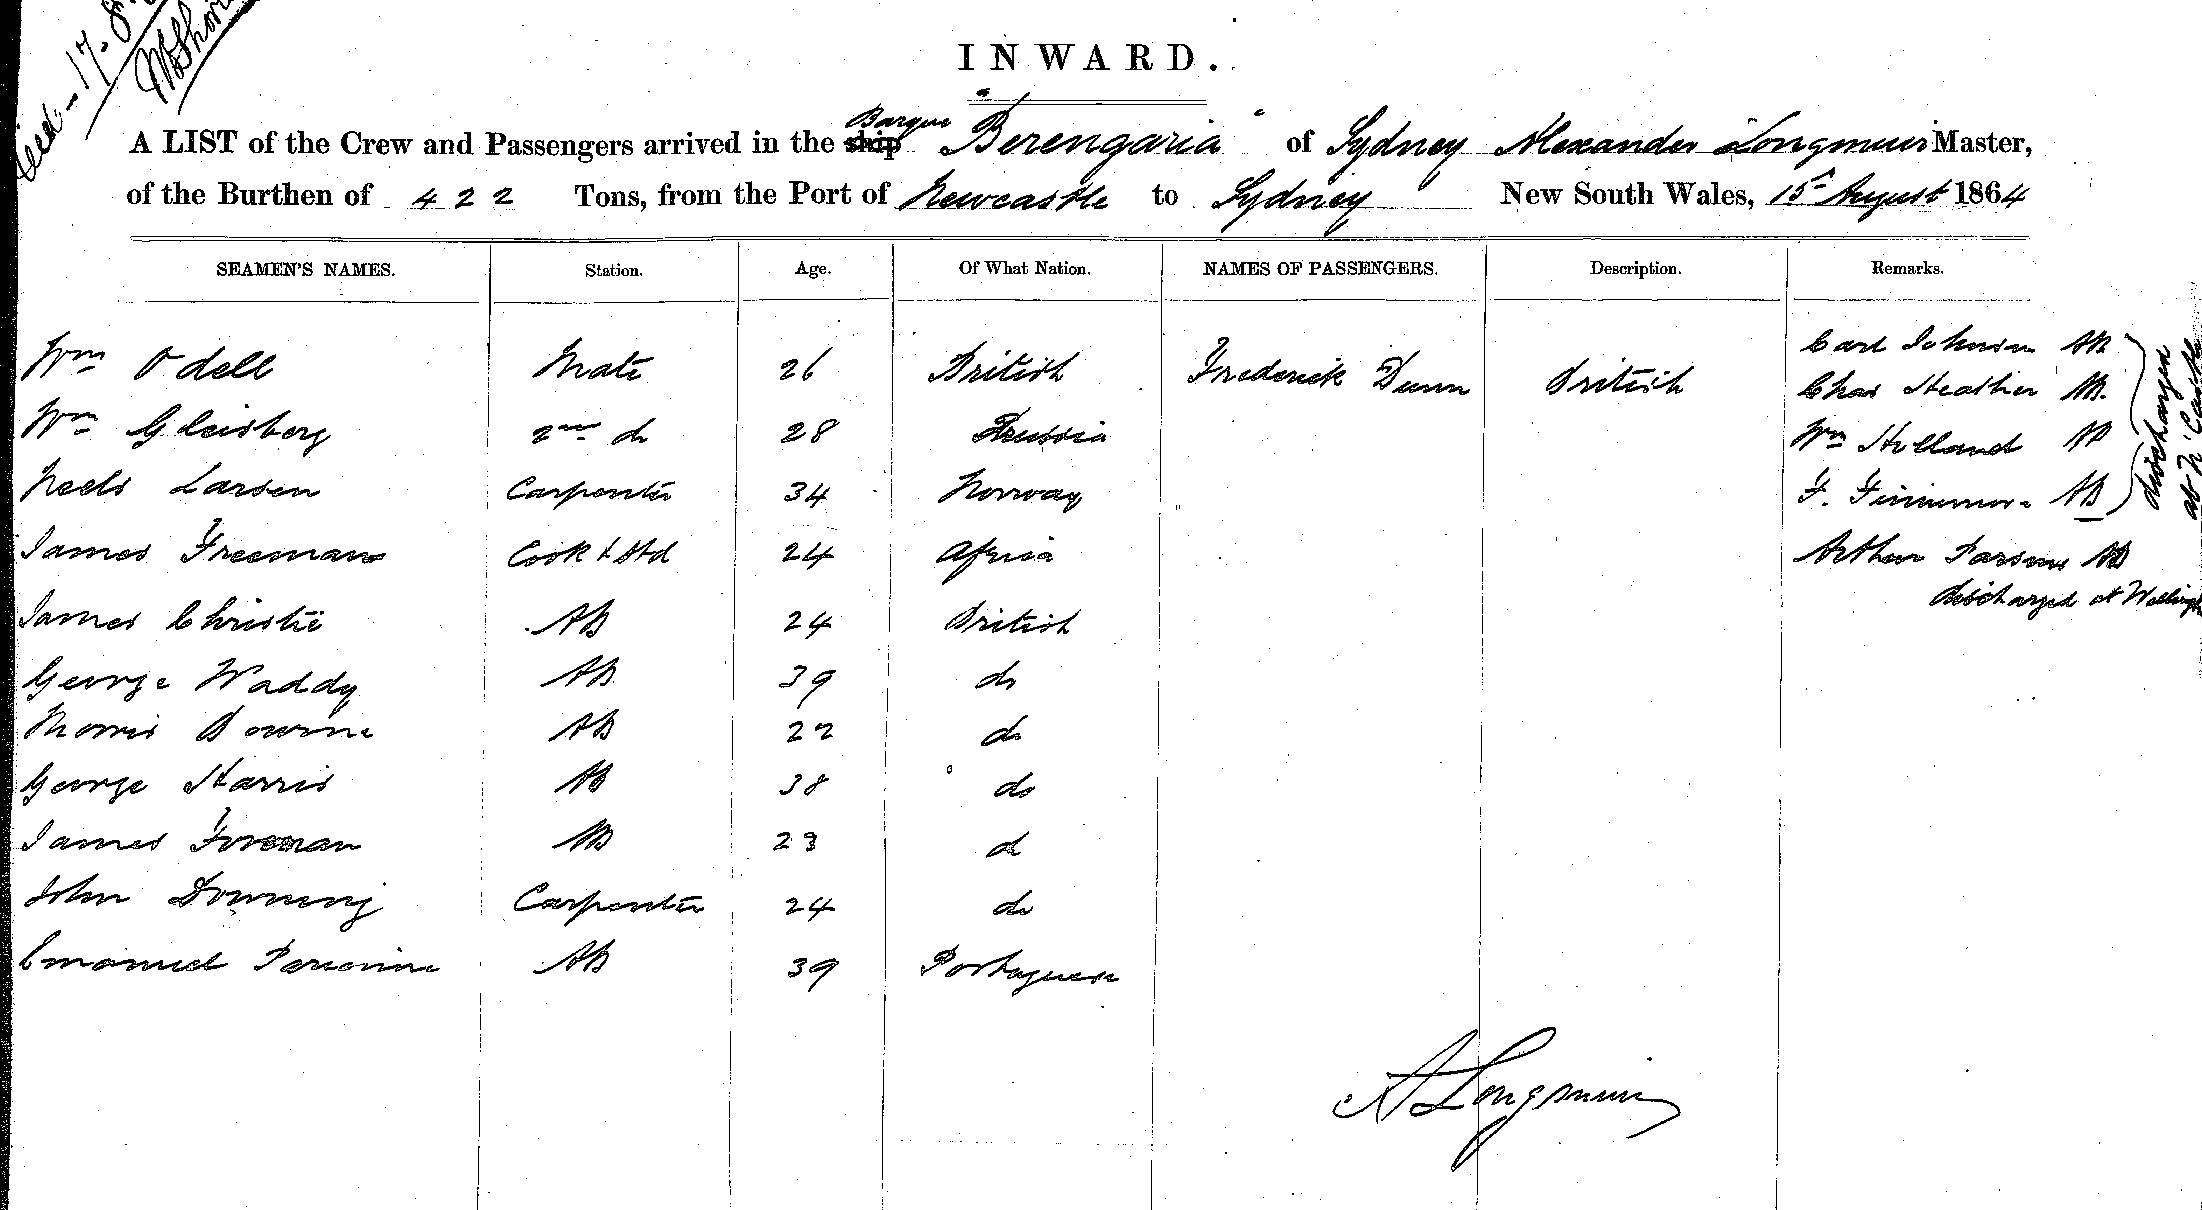 INWARD.
A LIST of the Crew and Passengers arrived in the ship Barque "Berengaria" of Sydney Alexander Longmuir Master,
of the Burthen of 422 Tons, from the Port of Newcastle to Sydney New South Wales, 15th August 1864
SEAMEN'S NAMES. Station. Age. Of What Nation. NAMES OF PASSENGERS. Description. Remarks.
Wm Odell Mate 26 British Frederick Dunn British Carl Johnson AB
Chas Heather AB.
Wm Gleisberg 2nd do 28 Prussia Wm Holland AB
Neels Larsen Carpenter 34 Norway F. Finnemore AB
discharged
at N'Castle
James Freeman Cook & Std 24 Africa Arthur Parsons AB
discharged at
James Christie AB 24 British
George Waddy AB 39 do
Morris Bourne AB 22 do
George Harris AB 38 do
James Foreman AB 23 d
John Downing Carpenter 24 do
Emanuel AB 39 Portuguese
A Longmuir